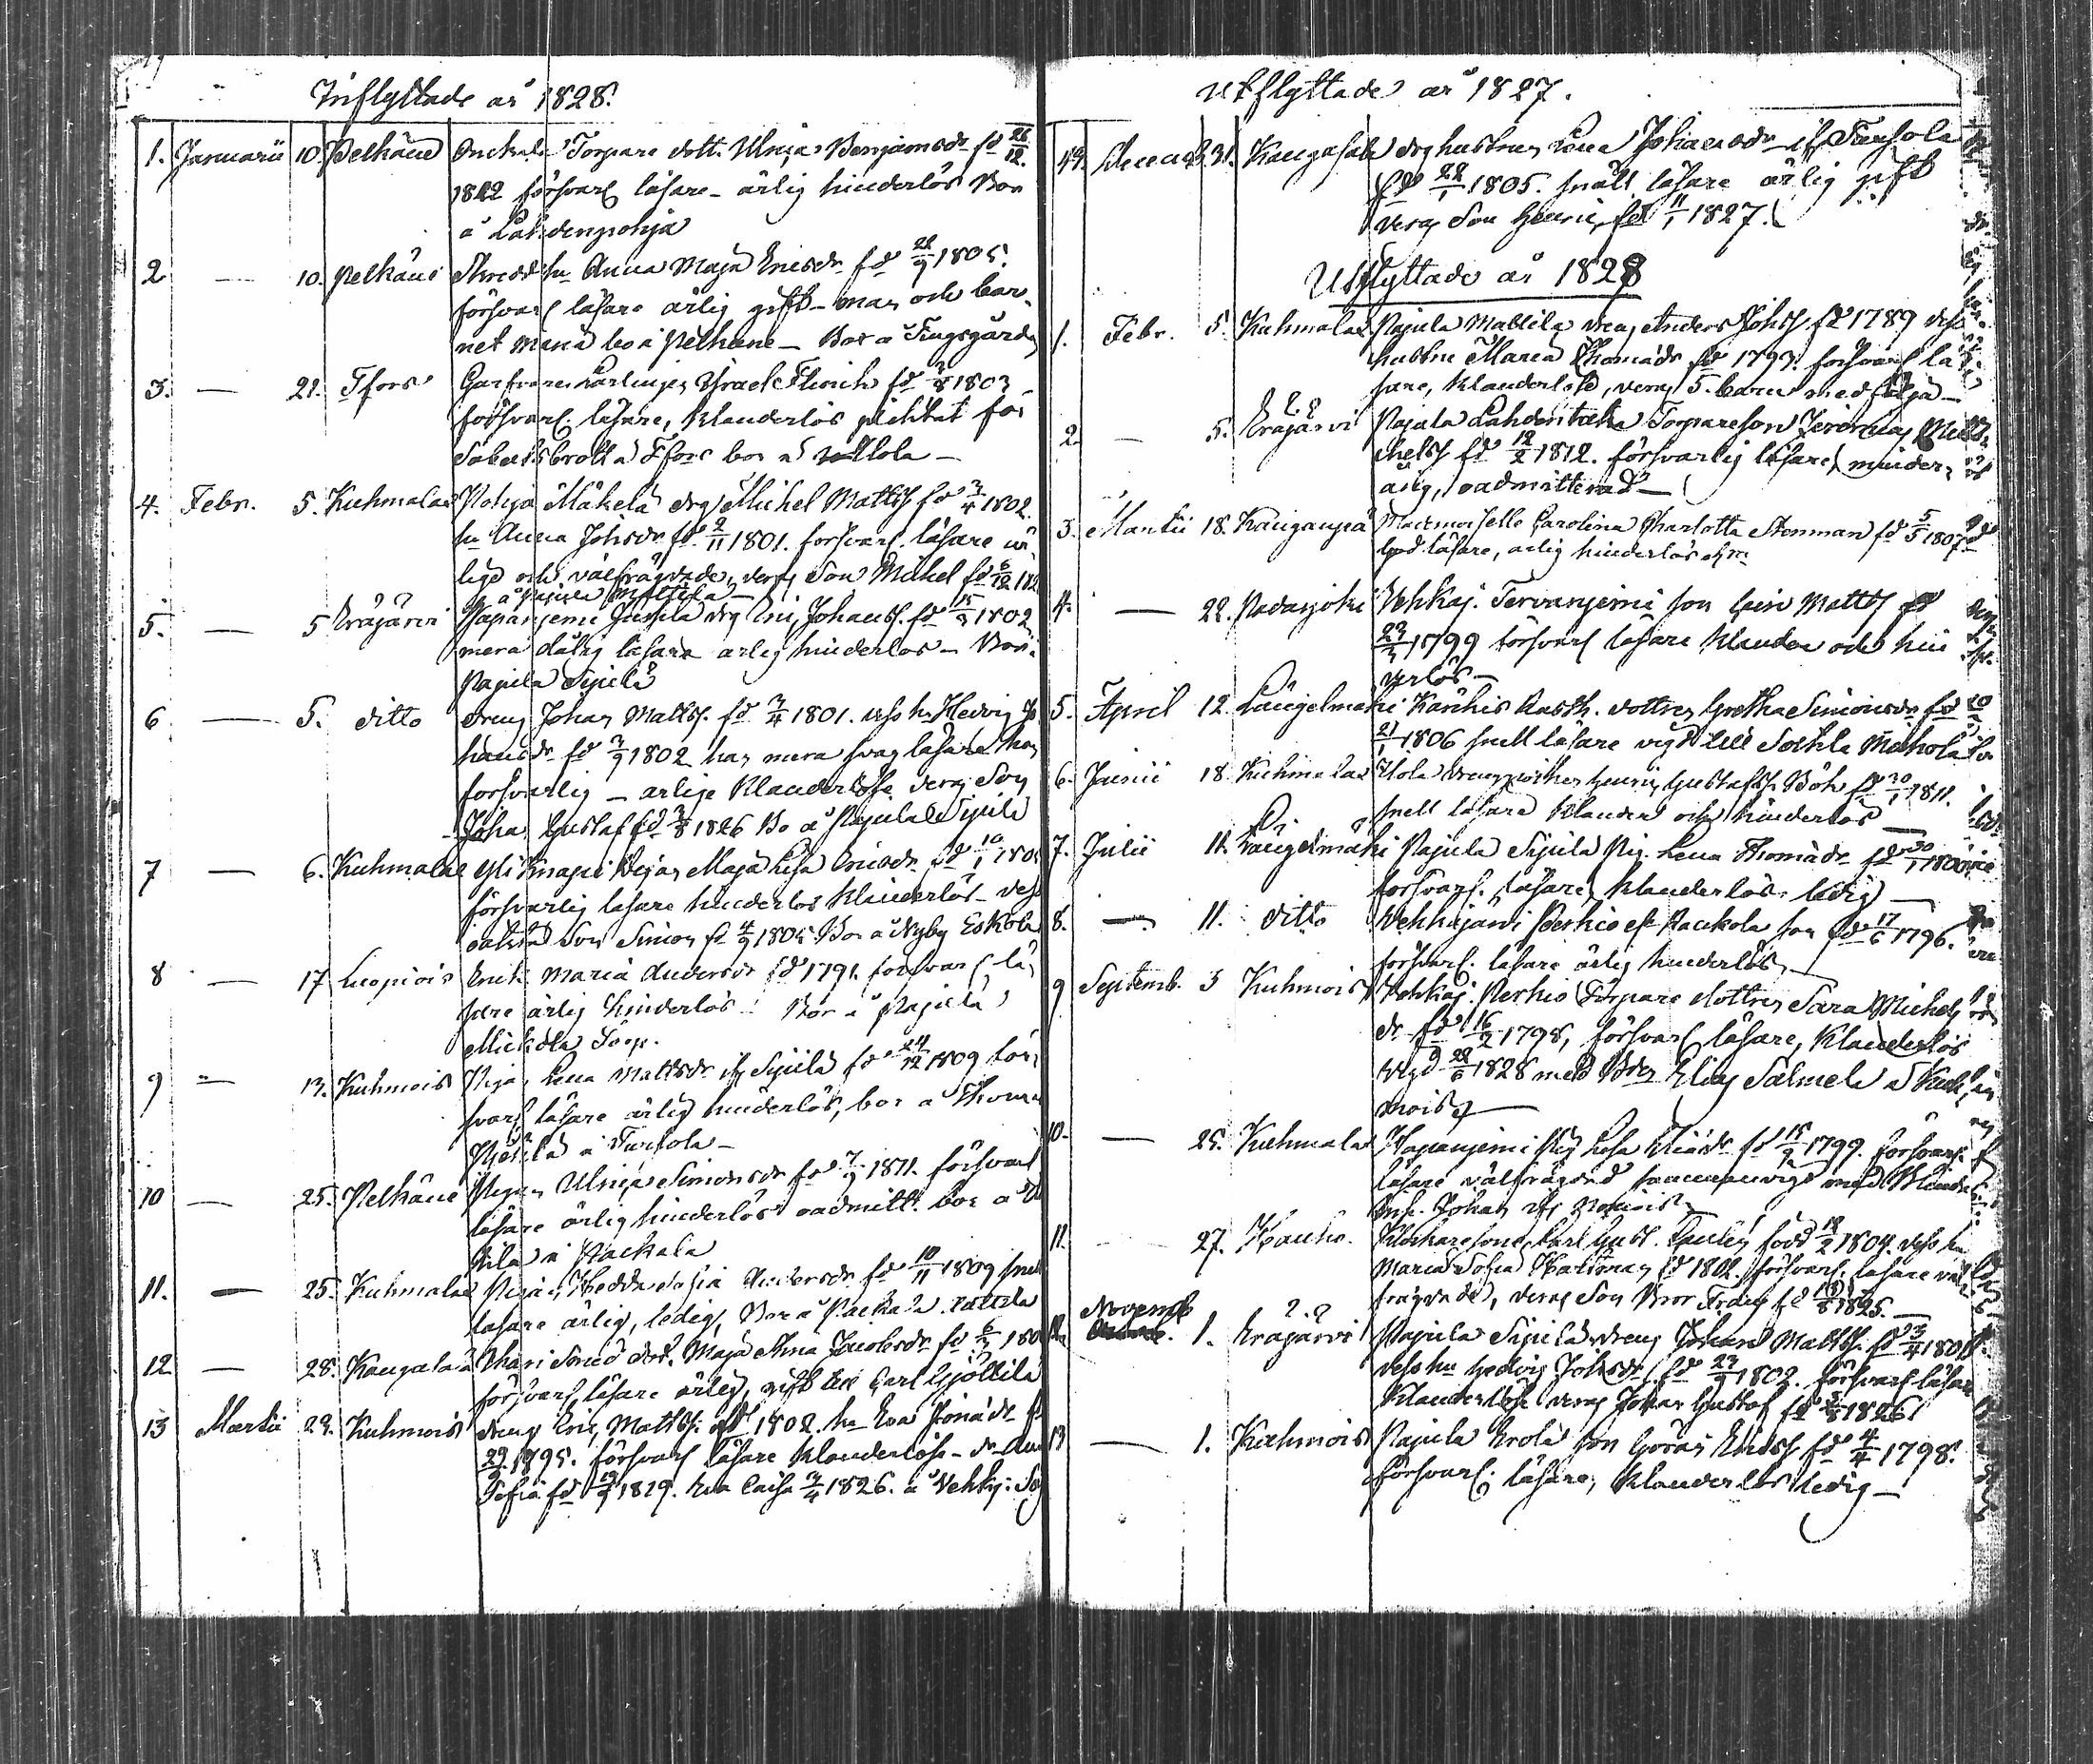 Inflyttade år 1828.
1. Januarii 10. Pelkäne Onckala Torpare dott. Ulrica Benjamsdr fd 26/12.
1812 försvarl läsare - ärlig hinderlös Bor
å Lahdenpohja
2 — 10. Pelkäne Skredd hu Anna Maja Ericsdr fd 28/9 1805.
försvarl läsare ärlig gift - man och bar-
net Mina bo i Pelkäne - Bor å Kugsgårds
3. — 21. Tfors Garfvare Lärlingen Israel Florich fd 3/8 1803
försvarl. läsare, klanderlös pliktat för
Sabbatsbrott i Tfors bor å
4. Febr. 5. Kuhmalax Pohja Mäkelä drg Michel Matts. fd 3/4 1802.
hu Anna Johsdr fd 2/11 1801. försvarl. läsare är
lige och välfrägdade, deras Son Mickel fd 6/12 182
å Pajula Mattila
5. — 5 Eräjärvi Haapaniemi Jussila drg Eric Johanss. fd 15/3 1802
mera dålig läsare ärlig hinderlös - Bor i
Pajula Sipilä
6 — 5. ditto dreng Johan Matts. fd 3/4 1801. dess hu Hedvig Jo
hansdr fd 3/9 1802 han mera svag läsare hon
försvarlig - ärlige klanderlöse deras Son
Johan Gustaf fd 3/8 1826 Bo å Pajula Sipilä
7 — 6. Kuhmalax Yli Knapi Pigan Maja Lisa Ericsdr fd 10/1 180
försvarlig läsare hinderlös klanderlös - dess
oäkta Son Simon fd 4/9 1805 Bor å Nyby Eskola
8 — 17 Luopiois Enk. Maria Andersdr fd 1791. försvarl lä-
sare ärlig hinderlös. Bor å Pajula
Mickola Torp.
9 — 13. Kuhmois Pigan Lena Mattsdr ifr Sipilä fd 24/12 1809 för
svarl läsare ärlig hinderlös, bor å Thoma
Heikilä i Tursola -
10 — 25. Pelkäne Pigan Ulrica Simonsdr fd 7/9 1811. försvarl
läsare ärlig hinderlös oadmitt. bor å
kila i Packala
11. — 25. Kuhmalax Pigan Hedda Sofia Andersdr fd 10/11 1809 snell
läsare ärlig, ledig, Bor å Packala Rattila
12 — 28. Kangasala Ihari Smed dott. Maja Stina Jacobsdr fd 6/3 180
försvarl läsare ärlig, gift till Carl Yjöllilä
13 Martii 29. Kuhmois dreng Eric Matts. fd 1802. hu Eva Jonædr fd
29/9 1795. försvarl läsare klanderlöse - dr Ann
Sofia fd 19/9 1819. Eva Caisa 3/4 1826. å Vehkj.
Utflyttade år 1827.
49. December 31. Kangasala drghustrun Lena Johansdr ifr Tursola
fd 28/1 1805. snäll läsare ärlig gift
deras Son Henric fd 11/1 1827.
Utflyttade år 1828
1. Febr. 5. Kuhmalax Pajula Mattila dreng Anders Johss fd 1789 dess
hustru Maria Thomædr fd 1793. försvarl lä
sare, klanderlöse, deras 5. barn medfölja -
2. — 5. Eräjärvi Pajula Lahdentaka Torpareson Jeremias Mi
chelss fd 12/2 1812. försvarlig läsare, minder-
årig, oadmitterad -
3. Martii 18. Kangasniemi Mademoiselle Carolina Charlotta Stenman fd 5/5 1807
god läsare, ärlig hinderlös
4. — 28. Padasjoki Vehkaj. Tervaniemi son Eric Matts fd
29/3 1799 försvarl läsare klander och hin
derlös -
5. April 12. Längelmäki Kärkis Rusth. dottren Gretha Simonsdr fd
21/1 1806 snell läsare vigd till Sockla Michola
6. Junii 18. Kuhmalax Illola drengpojken Henric Gustafss Böh fd 30/1 1811.
snell läsare klander och hinderlös
7. Julii 11. Längelmäki Pajula Sipilä Pig. Lena Thomædr fd 30/1 1800
försvarl. läsare, klanderlös, ledig -
8. — 11. ditto Vehkajarvi Perkio eft Packola son fd 17/6 1796.
försvarl. läsare ärlig hinderlös -
9 Septemb. 3 Kuhmois Vehkaj. Perkio Torpare dottren Sara Michels
dr fd 16/2 1798, försvarl läsare, klanderlös
vigd 28/6 1828 med Elias Salmela i Kuh-
mois
10. — 25. Kuhmalax Haapaniemi Pig Lisa dr fd 15/9 1799. försvarl.
läsare välfrägdad sammanvigd med
Johan ifr Mokois
11. — 27. Hauho. Klockaresonen Carl Gust. Paulin född 18/2 1804. dess hu
Maria Sofia Hallman fd 1802. försvarl. läsare väl
frägdade, deras Son Bror Fredric fd 18/8 1825.
12. Novemb 1. Eräjärvi Pajula Sipilä dreng Johan Matts. fd 3/4 1801.
dess hu Hedvig Johsdr fd 23/9 1802. försvarl läsare
klanderlöse deras Johan Gustaf fd 3/8 1826
13 — 1. Kuhmois Pajula Erola son Göran Ericss fd 4/4 1798.
försvarl. läsare, klanderlös ledig -